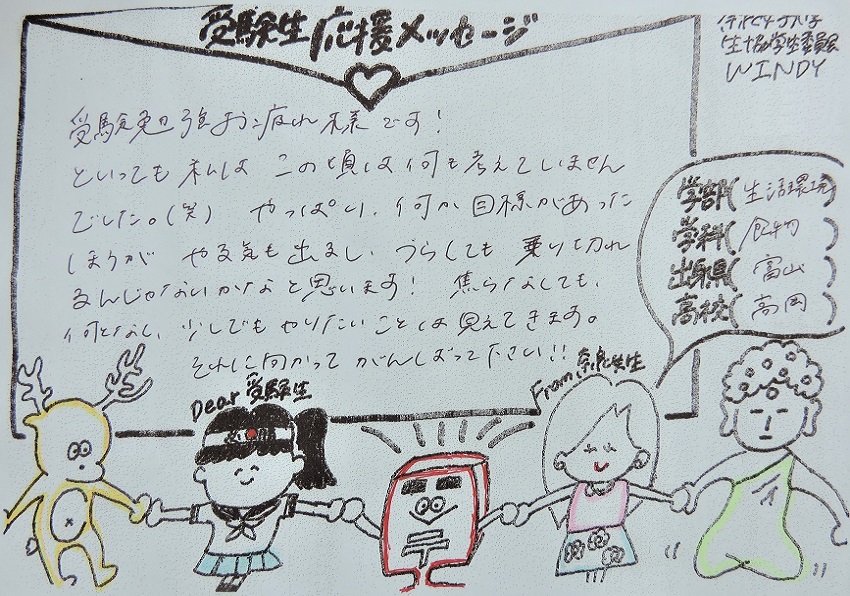 受験生応援メッセージ
生協学生委員会
WINDY
受験勉強お疲れ様です！
といっても私は この頃は何も考えていません
でした。(笑) やっぱり、何か目標があった
ほうが やる気も出るし、つらくても 乗り切れ
るんじゃないかなと思います！ 焦らなくても、
何となく、少しでもやりたいことは見えてきます。
それに向かって がんばって下さい!!
学部(生活環境)
学科(食物)
出身県(富山)
高校(高岡)
Dear 受験生
From 奈良女生
〒